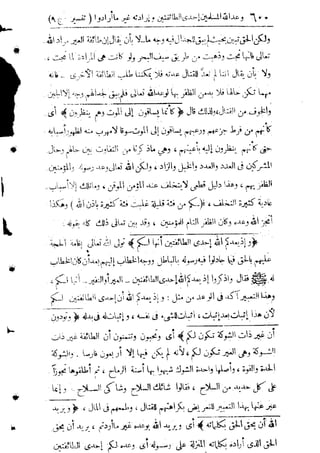 ٦٠٠ وعد الله المسلمين إحدى الطائفتين وإرادته غير ما أرادوا ( تفسير : ج ٩ )
ولكن الحق تبين بحيث لم يبق للجدال فيه وجه ما لا بأن يقال إن طائفة العير مراد الله
تعالى فانها نجت وذهبت من طريق سيف البحر ولو كانت هي المرادة لما نجت ،
ولا بأن يقال اننا لم نعد للقتال عدته فلا يمكننا طلب الطائفة الأخرى . فانه
مهما تكن حالها فلا بد من الظفر بها لوعد الله تعالى فلم يبق لجدالهم وجه إلا الجبن
والخوف من القتال ولذلك قال ﴿ كأنما يساقون إلى الموت وهم ينظرون ﴾ أي
كأنهم من فرط جزعهم ورعبهم يساقون إلى الموت سوقا لا مهرب منه لظهور أسبابه
حتى كأنهم ينظرون إليه بأعينهم ، وهي ما ذكرنا من التفاوت بين حالهم وحال
المشركين في العدد والعدد والخيل والزاد ، ولكن الله تعالى وعد رسوله والمؤمنين
الظفر بهم ، وهذا دليل قطعي لا يتخلف عند المؤمن الموقن ، وما تلك إلا أسباب
عادية كثيرة التخلف ، ( وكم من فئة قليلة غلبت فئة كثيرة باذن الله ) وهكذا
أنجز الله وعده وكان الظفر التام للمؤمنين ، وقد بين تعالى ذلك كله بقوله :
﴿ وإذ يعدكم الله إحدى الطائفتين أنها لكم ﴾ تولى الله تعالى إقامة الحجة
عليهم بالحق فيما جادلوا فيه رسوله بالباطل ووجه الخطاب إليهم بعد أن كان الخطاب
له ﷺ فقال واذكروا إذ يعدكم الله إحدى الطائفتين ـ العير أو النفير ـ أنها لكم ،
وهذا التعبير آكد في الوعد من مثل : وإذ يعدكم الله أن إحدى الطائفتين لكم
لأن هذا إثبات بعد إثبات ، إثبات للشيء في نفسه ، وإثبات له في بدله ﴿ وتودون
أن غير ذات الشوكة تكون لكم ﴾ أي وتحبون وتتمنون أن الطائفة غير ذات
الشوكة وهي العير تكون لكم ، لأنه لم يكن فيها إلا أربعون فارسا . والشوكة
الحدة والقوة ، وأصلها واحدة الشوك شبهوا بها أسنة الرماح ، ثم أطلقوها تجوزا
على كل حديد من السلاح ، فقالوا شائك السلاح وشاكي السلاح . وإنما
عبر عنها بهذا التعبير للتعريض بكراهتهم للقتال ، وطمعهم في المال ، ﴿ ويريد
الله أن يحق الحق بكلماته ﴾ أي ويريد الله بوعده غير ما أردتم ، يريد أن يحق
الحق الذي أراده بكلماته المنزلة على رسوله أي وعده لكم إحدى الطائفتين